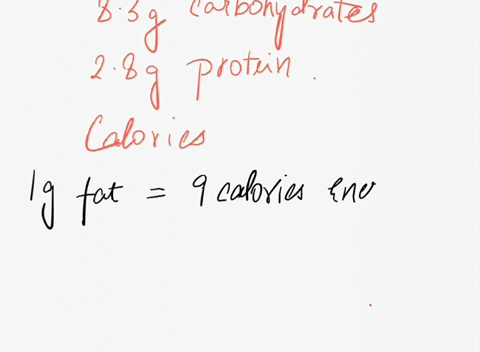 8.3g carbohydrates
2.8g protein.
Calories
1g fat = 9 calories ene